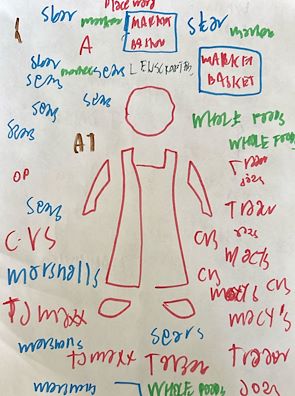 MARKET
BASKET
star
market
star
market
A
star
market
sears
MARKET
BASKET
sears
sears
sears
WHOLE FOODS
WHOLE FOODS
sears
A
Trader
Joes
OP
Trader
Joes
sears
CVS
CVS
macys
CVS
marshalls
CVS
macy's
TJ maxx
macy's
sears
marshalls
TJ maxx
Trader
Trader
Joes
marshalls
WHOLE FOODS